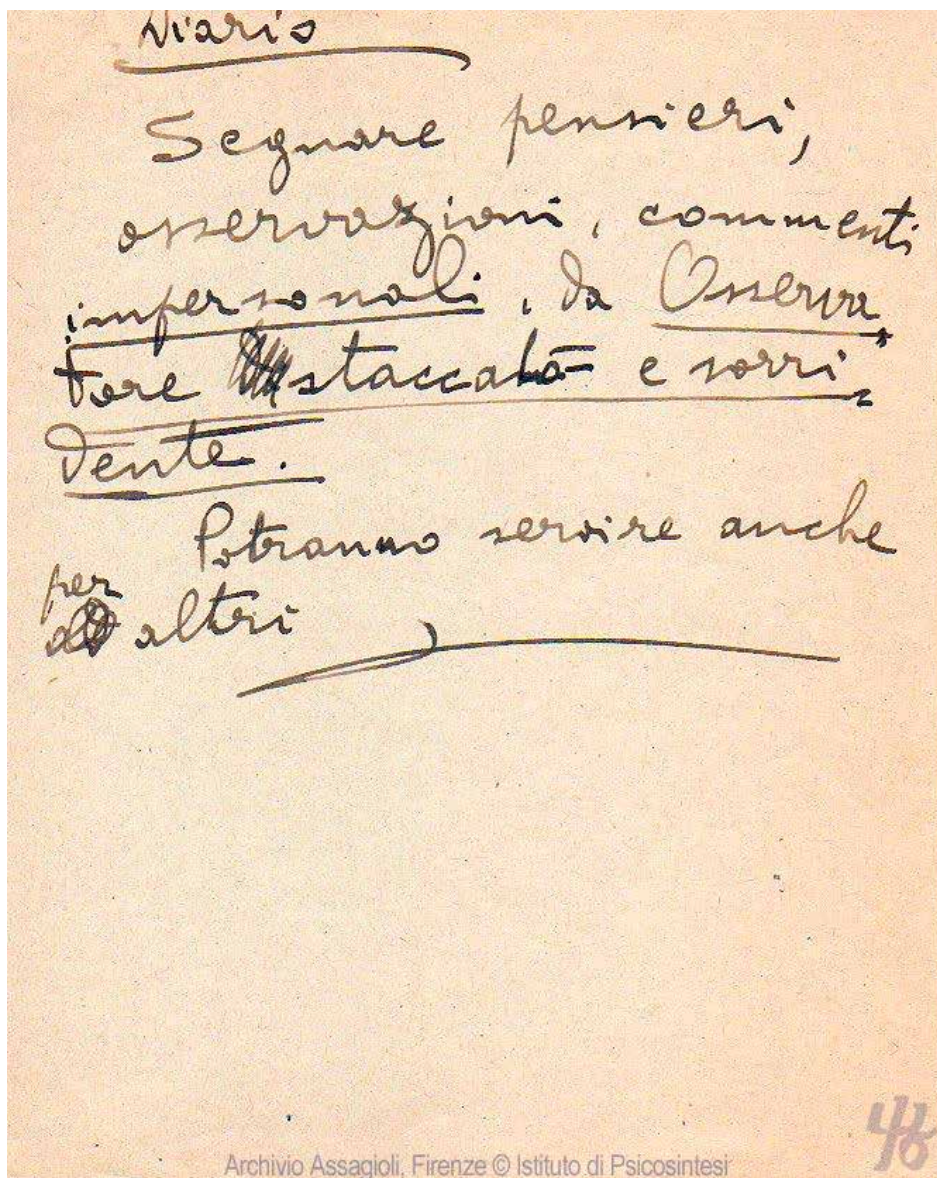 Diario
Segnare pensieri,
osservazioni, commenti
impersonali, da Osserva
tore staccato e sorri-
dente.
Potranno servire anche
per
altri
Archivio Assagioli, Firenze © Istituto di Psicosintesi